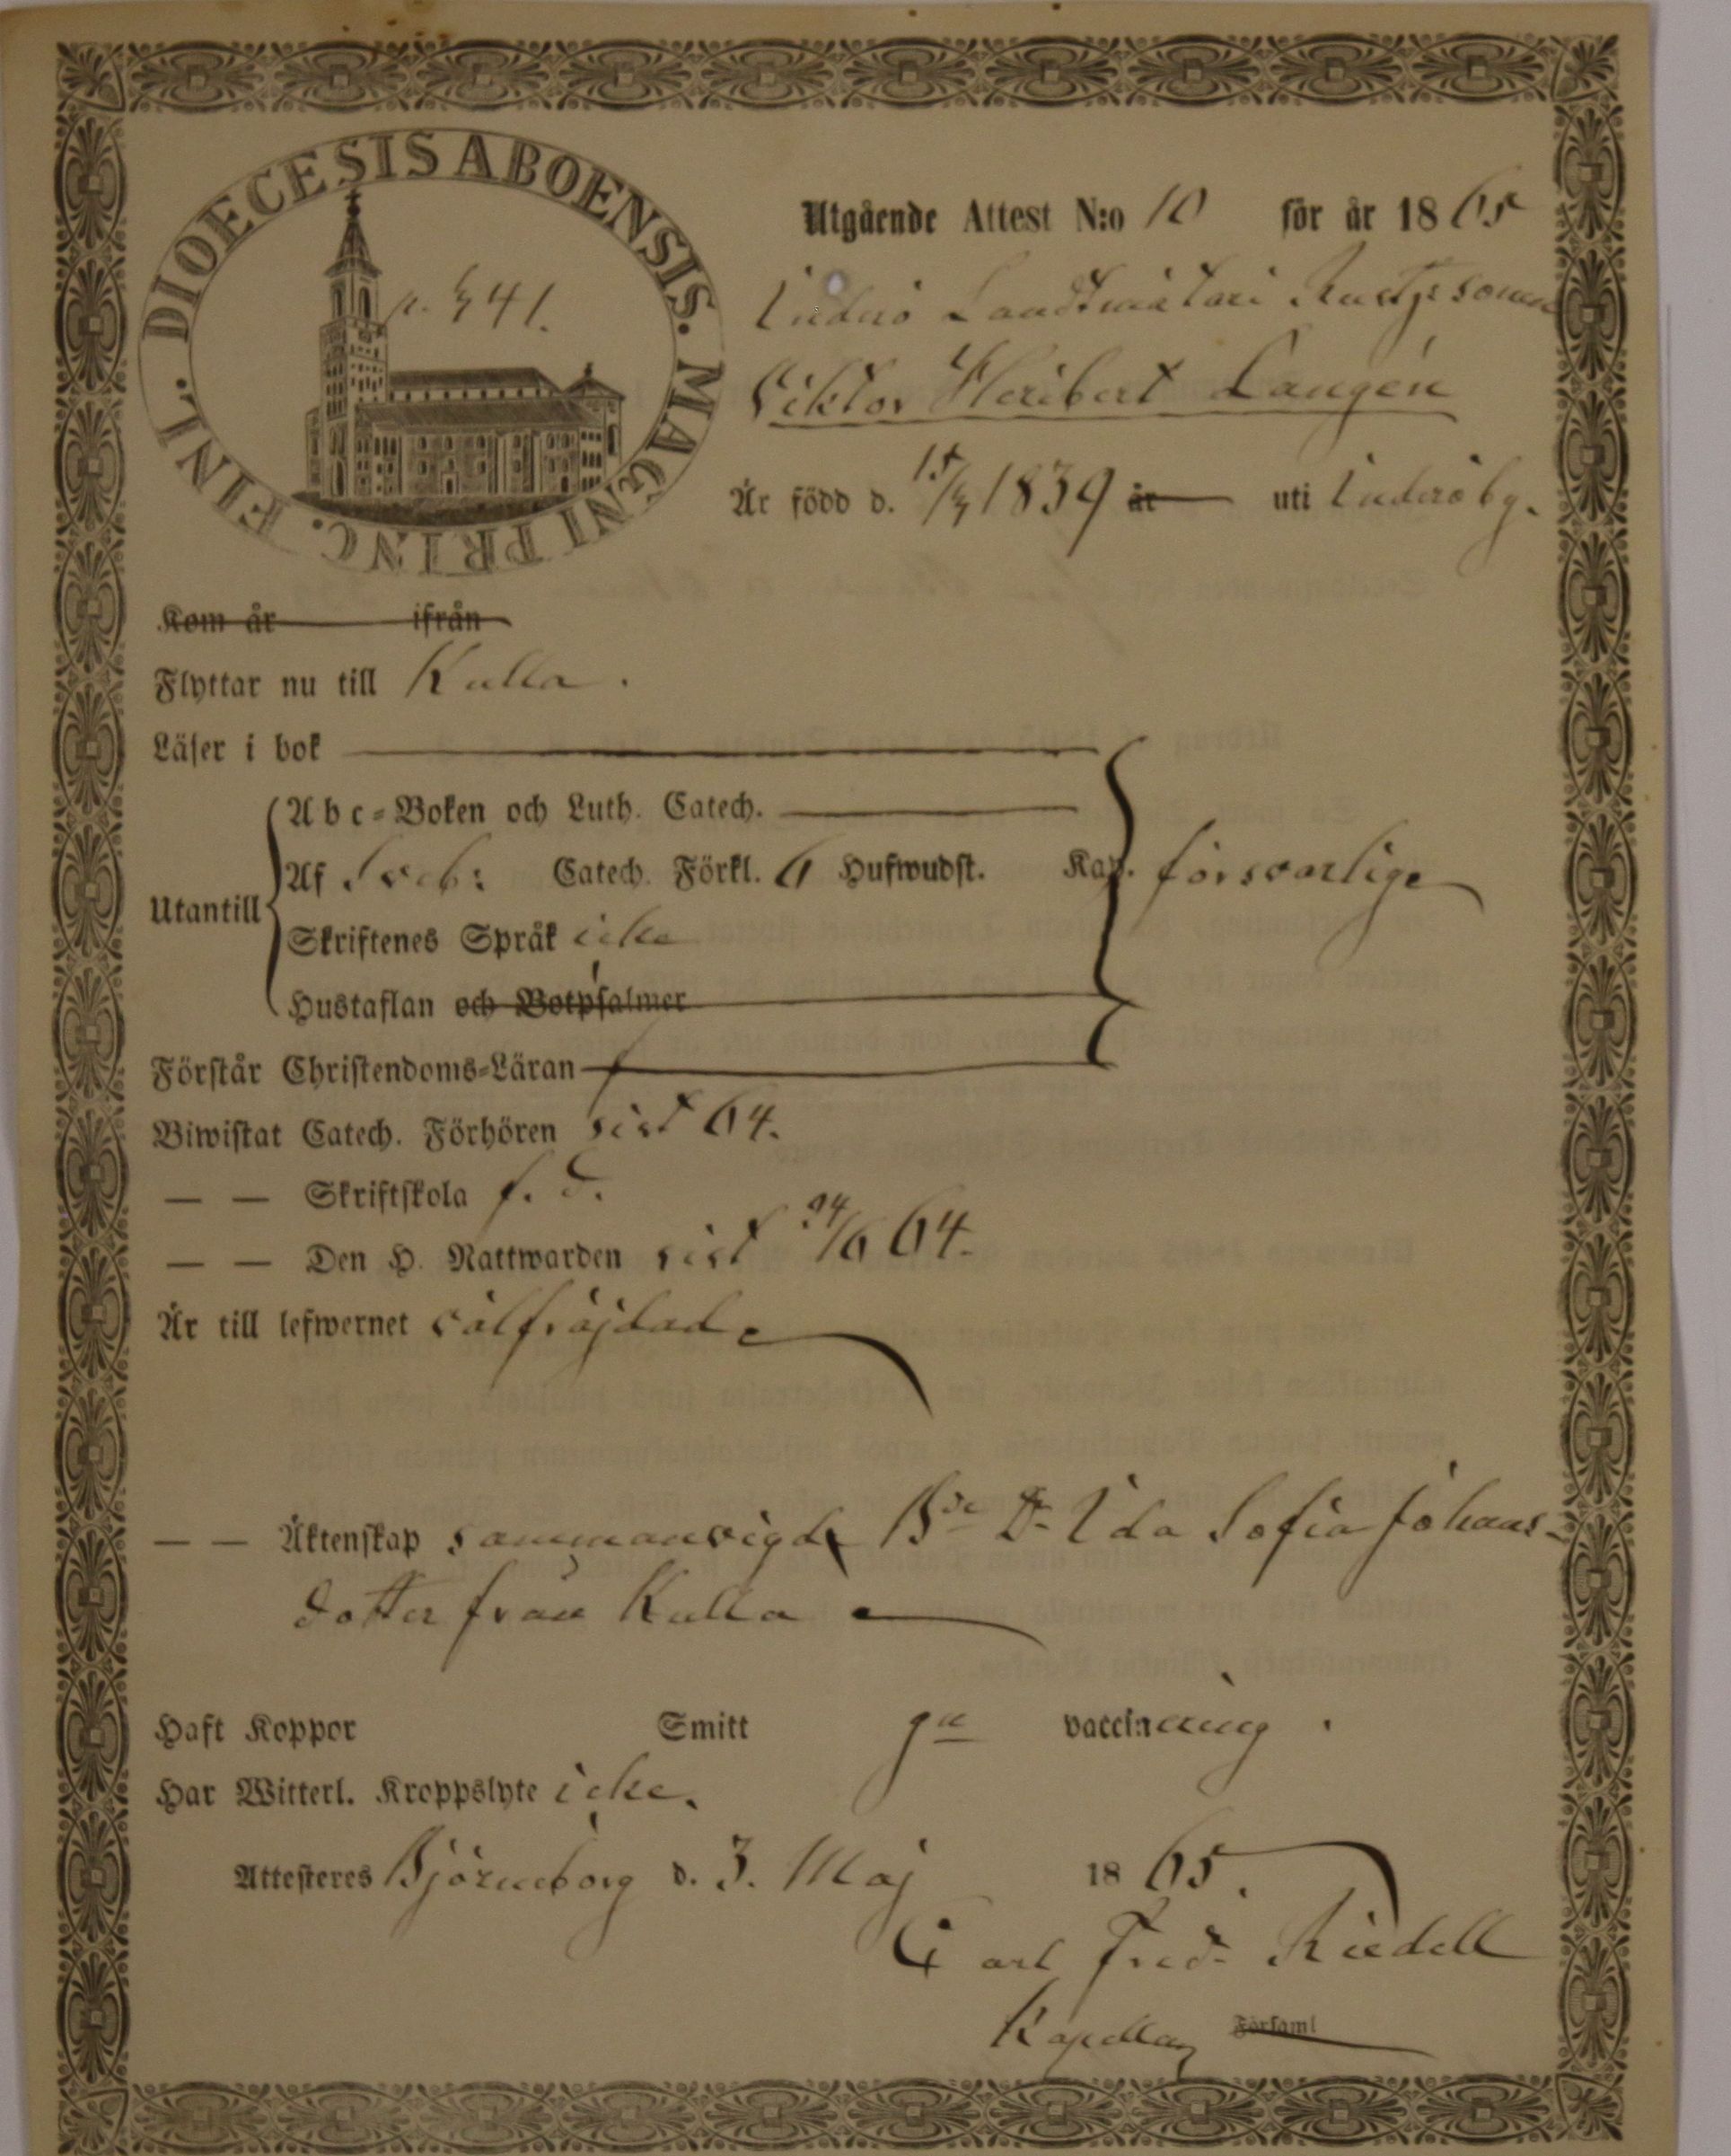 DIOECESIS ABOENSIS. MAGNI PRINC. FINL.
p. 441.
Utgående Attest N:o 10 för år 1865
Inderö Landtmätari Rustjrsonen
Viktor Heribert Langén
Är född d. 15/4 1839 år uti Inderöby.
Kom år ifrån
Flyttar nu till Kulla.
Läser i bok
Utantill
Abc-Boken och Luth. Catech.
Af Sveb: Catech. Förkl. 6 Hufwudst. Kap. försvarlige
Skriftenes Språk icke
Hustaflan och Botpsalmer
Förstår Christendoms-Läran
Biwistat Catech. Förhören sist 64.
— — Skriftskola f. d.
— — Den H. Nattwarden sist 24/6 64.
Är till lefwernet välfräjdad
— — Äktenskap sammanvigde Bde Dr Ida Sofia Johans-
dotter från Kulla
Haft Koppor Smitt ga vaccinering.
Har Witterl. Kroppslyte icke.
Attesteres Björneborg d. 3. Maj 1865.
Carl Fred. Riedell
Kapellan Församl